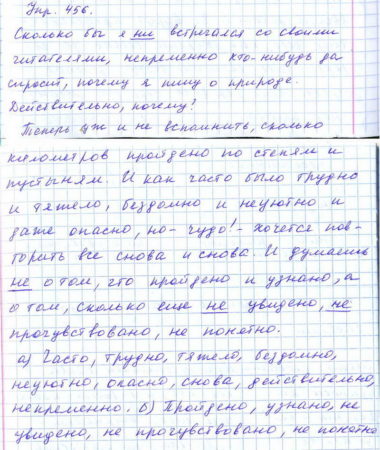 Упр. 456.
Сколько бы я ни встречался со своими
читателями, непременно кто-нибудь да
спросит, почему я пишу о природе.
Действительно, почему?
Теперь уж и не вспомнить, сколько
километров пройдено по степям и
пустыням. И как часто было трудно
и тяжело, бездомно и неуютно и
даже опасно, но - чудо! - хочется пов-
торить все снова и снова. И думаешь
не о том, что пройдено и узнано, а
о том, сколько еще не увидено, не
прочувствовано, не понятно.
а) Часто, трудно, тяжело, бездомно,
неуютно, опасно, снова, действительно,
непременно. б) Пройдено, узнано, не
увидено, не прочувствовано, не понятно